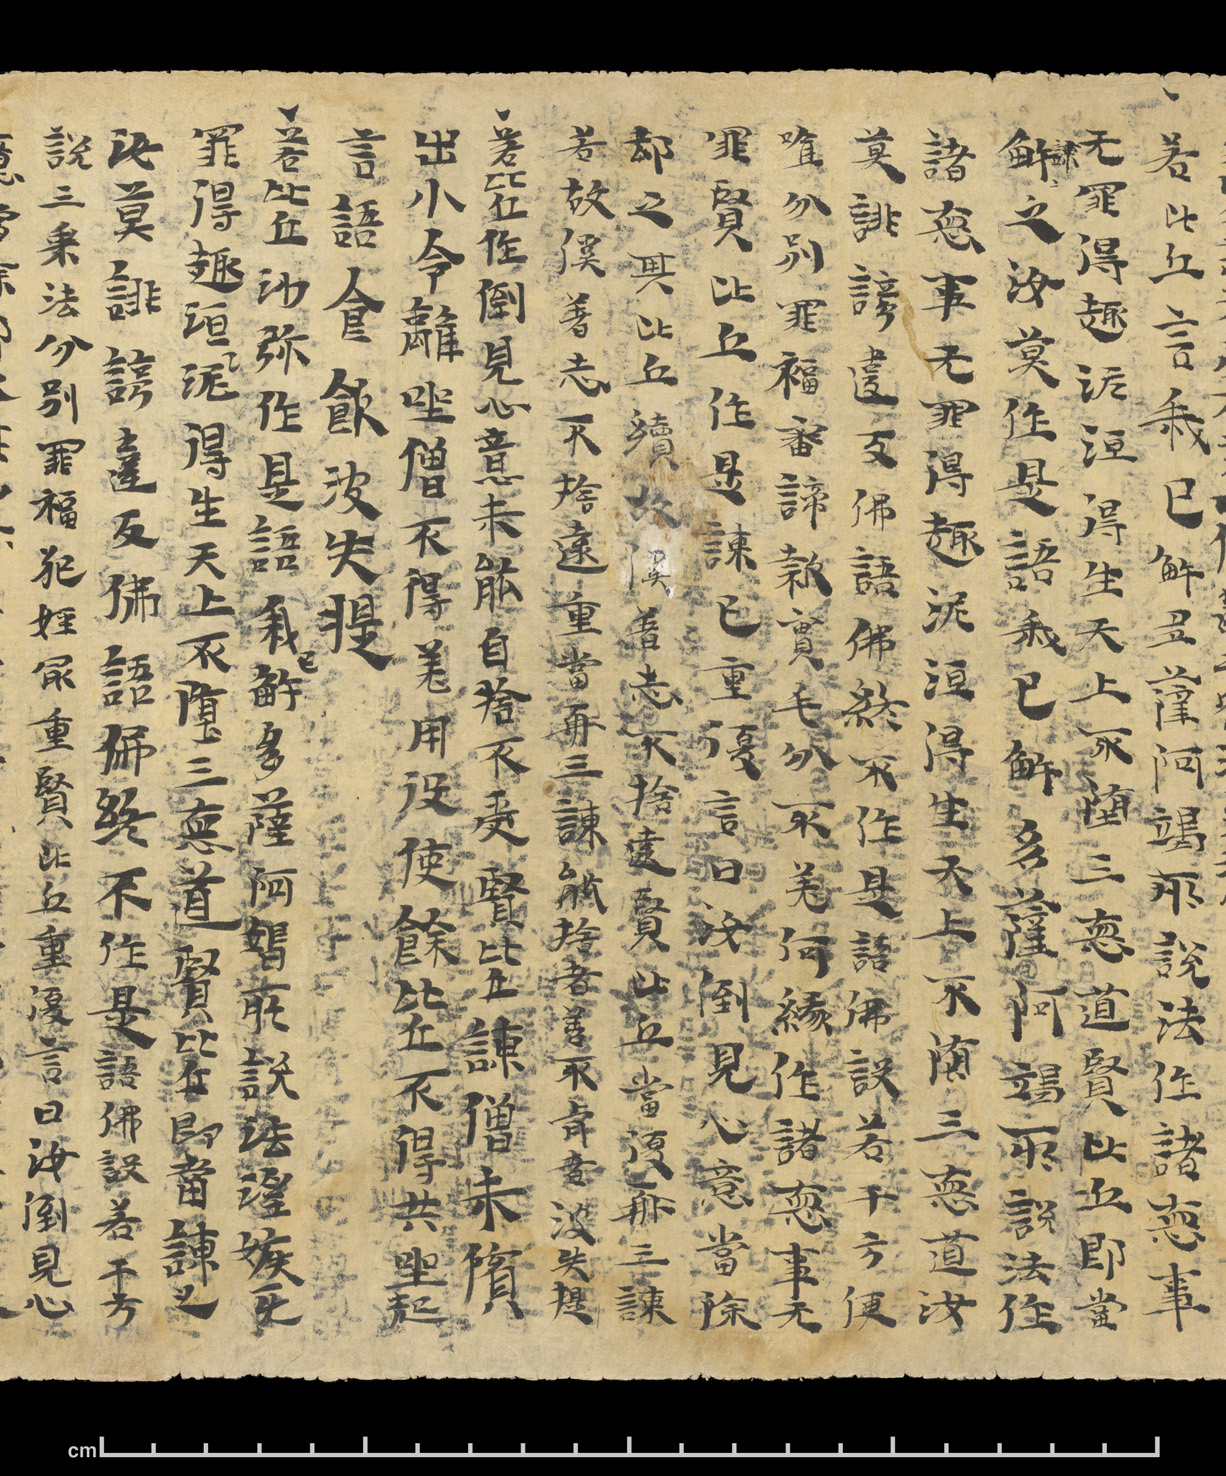 若比丘言我已解多薩阿竭所說法作諸惡事
无罪得趣泥洹得生天上不墮三惡道賢比丘即當
諫
解之汝莫作是語我已解多薩阿竭所說法作
諸惡事无罪得趣泥洹得生天上不墮三惡道汝
莫誹謗違反佛語佛終不作是語佛說若干方便
唯分別罪福審諦款實毛分不差何緣作諸惡事无
罪賢比丘作是諫已重復言曰汝倒見心意當除
却之其比丘續故傒善志不捨違賢比丘當復再三諫
若故傒善志不捨遠重當再三諫能捨者善不肯者波失提
若比丘作倒見心意未能自捨不受賢比丘諫僧未擯
出小令離坐僧不得差用役使餘比丘不得共坐起
言語食飲波失提
若比丘沙弥作是語我已解多薩阿竭所說法婬嫉无
罪得趣洹泥得生天上不墮三惡道賢比丘即當諫之
汝莫誹謗違反佛語佛終不作是語佛說若干方
說三乘法分別罪福犯婬最重賢比丘重復言曰汝倒見心